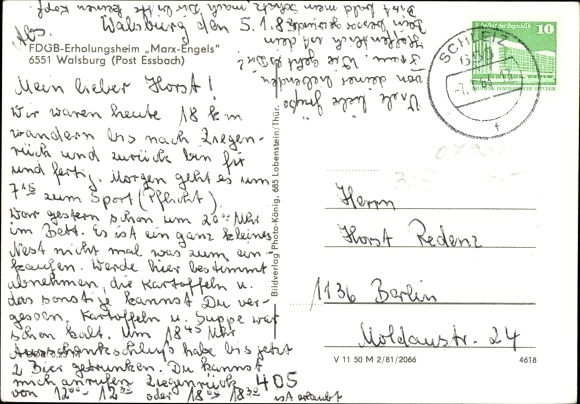 Abs. Walsburg den 5.1.83
FDGB-Erholungsheim „Marx-Engels"
6551 Walsburg (Post Essbach)
Mein lieber Horst!
Wir waren heute 18 km
wandern bis nach Ziegen-
rück und zurück bin fix
und fertig. Morgen geht es um
7 15 zum Sport (Pflicht).
War gestern schon um 20 00 Uhr
im Bett. Es ist ein ganz kleines
Nest nicht mal was zum ein-
kaufen. Werde hier bestimmt
abnehmen, die Kartoffeln u.
das sonstige kannst Du ver-
gessen. Kartoffeln u. Suppe war
schon kalt. Um 18 45 Uhr
Ausschankschluß habe bis jetzt
2 Bier getrunken. Du kannst
mich anrufen Ziegenrück 405
von 12 00 - 12 30 oder 18 00 18 30 ist erlaubt
Kopf
Bist bald mein Schatz mach Dir bitte keinen
Bein besser geworden
Hoffentlich ist dein
Wie geht es Dir?
Viele liebe Grüße
von deiner liebenden
Frau.
Bildverlag Photo-König, 685 Lobenstein/Thür.
SCHLEIZ
6550
f
10
Herrn
Horst Redenz
1136 Berlin
Moldaustr. 24
V 11 50 M 2/81/2066
4618